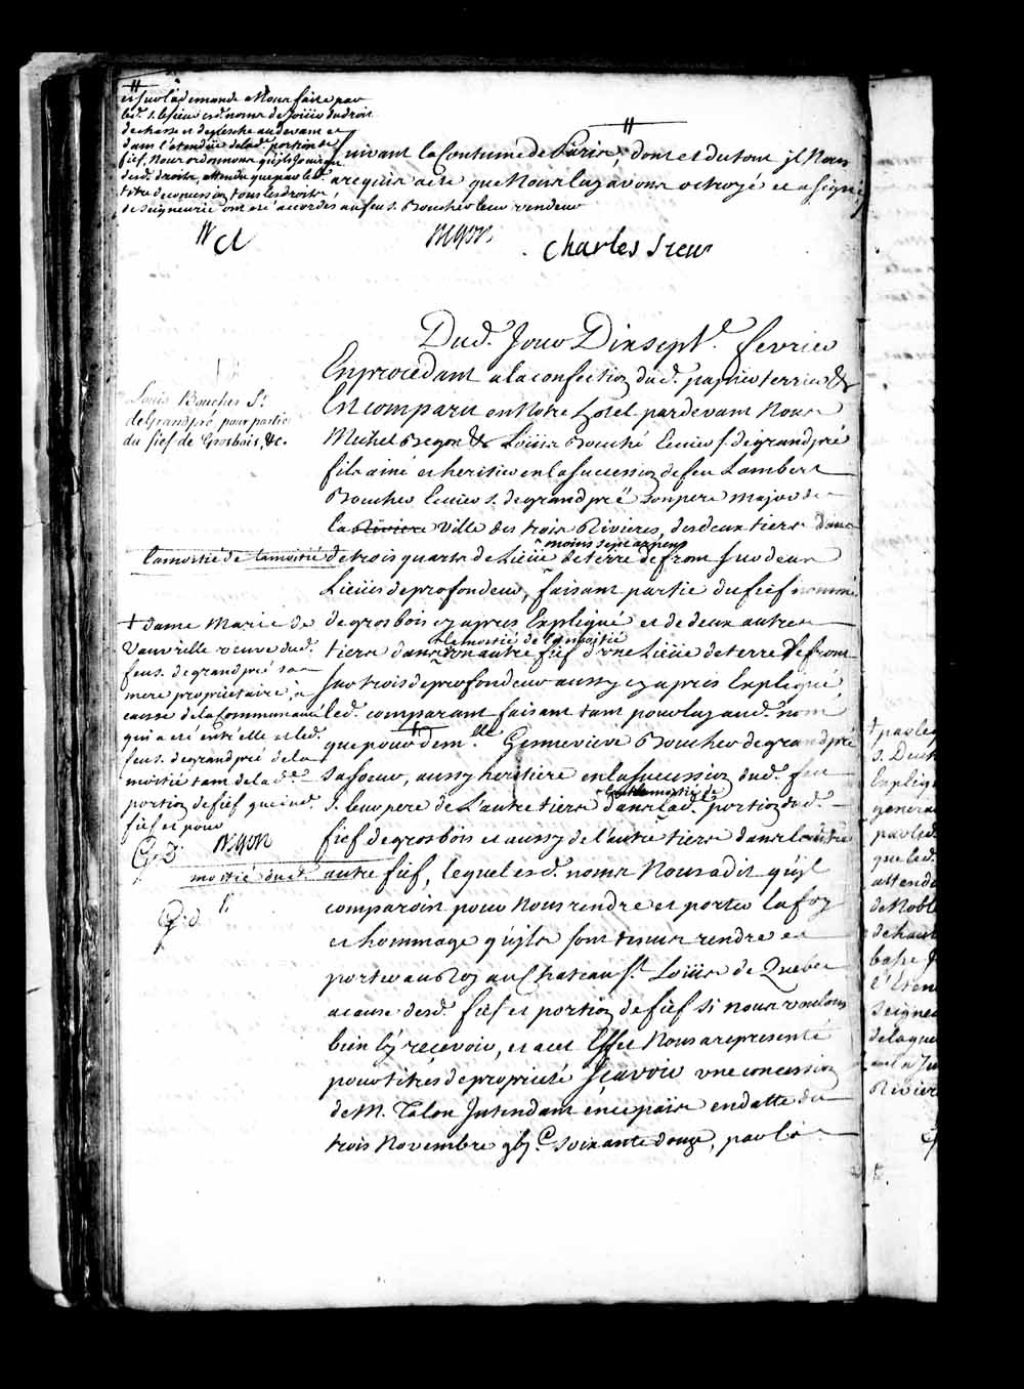 et sur la demande a Nous faite par
led. s. Lesieur esd. noms de Joüir du droit
de chasse et de pesche au devant et
dans l'etendüe de lad. portion de
fief, Nous ordonnons qu'ils Joüiront
desd. droits, attendu que par led.
titre de concession tous les droits
de seigneurie ont eté accordés au feu s. Boucher leur vendeur
suivant la Coutume de Paris; dont et du tout il Nous
a requis acte que Nous luy avons octroyé et a signé
Begon
Charles Sieur
Dud. Jour Dixsept.e fevrier
En procedant a la confection dud. papier terrier &
Est comparu en Notre hotel pardevant Nous
Michel Begon & Loüis Bouché Ecuier s. de grandpré
fils ainé et heritier en la succession de feu Lambert
Boucher Ecuier s. de grandpré son pere major de
la Riviere ville des trois Rivieres, des deux tiers dans
la moitié de la moitié de trois quarts de Lieüe moins sept arpens de terre de front sur deux
Lieües de profondeur, faisant partie du fief nommé
de grosbois cy apres Expliqué et de deux autres
tiers dans la moitié de la moitié d'un autre fief d'une Lieüe de terre de front
sur trois de profondeur aussy cy apres Expliqué
led. comparant faisant tant pour luy aud. nom
que pour dem.lle Genneviere Boucher de grandpré
sa soeur, aussy heritiere en la succession dud. feu
s. leur pere de L'autre tiers dans lad. portion dud.
fief de grosbois et aussy de l'autre tiers dans la
autre fief, lequel esd. noms Nous a dit qu'il
comparoist pour Nous rendre et porter la foy
et hommage qu'ils sont tenus rendre et
porter au Roy au Chateau S.t Loüis de Quebec
a cause desd. fief et portion de fief si nous voulons
bien l'y recevoir, et a cet Effet Nous a representé
pour titres de proprieté Sçavoir une concession
de M. Talon Intendant en ce païs en datte du
trois Novembre gbj.C soixante douze, par la
Louis Boucher S.r
de Grandpré pour partie
du fief de Grosbois, &c.
+ dame Marie de
Vauvrille veuve dud.
feu s. de grandpré sa
mere propriétaire à
cause de la Communauté
qui a eté entr'elle et led.
feu s. de grandpré de la
moitié tant de lad.
portion de fief que dud.
fief et pour
Begon
moitié dud.
+ par les
s. Duch
Expliq
genera
par led.
que led.
attendu
de Noble
de haute
basse
l'Eten
Seigneu
Rivier